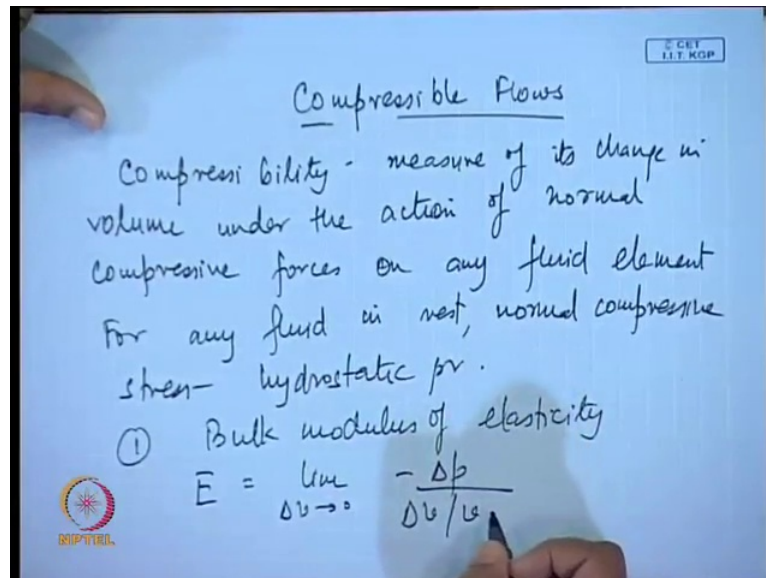 © CET
I.I.T. KGP
Compressible Flows
Compressibility - measure of its change in
volume under the action of normal
compressive forces on any fluid element
For any fluid in rest, normal compressive
stress - hydrostatic pr.
① Bulk modulus of elasticity
E = lim - Δp
Δv→0 Δv/v
NPTEL